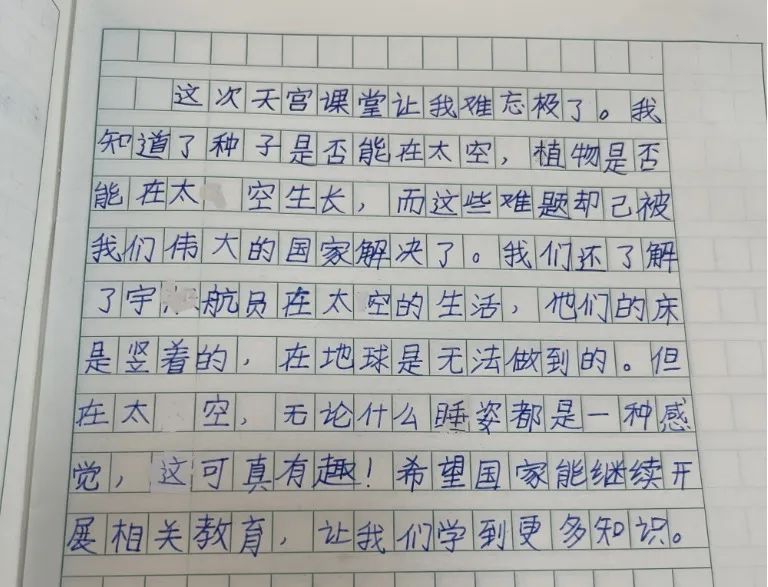 这次天宫课堂让我难忘极了。我
知道了种子是否能在太空，植物是否
能在太空生长，而这些难题却已被
我们伟大的国家解决了。我们还了解
了宇航员在太空的生活，他们的床
是竖着的，在地球是无法做到的。但
在太空，无论什么睡姿都是一种感
觉，这可真有趣！希望国家能继续开
展相关教育，让我们学到更多知识。